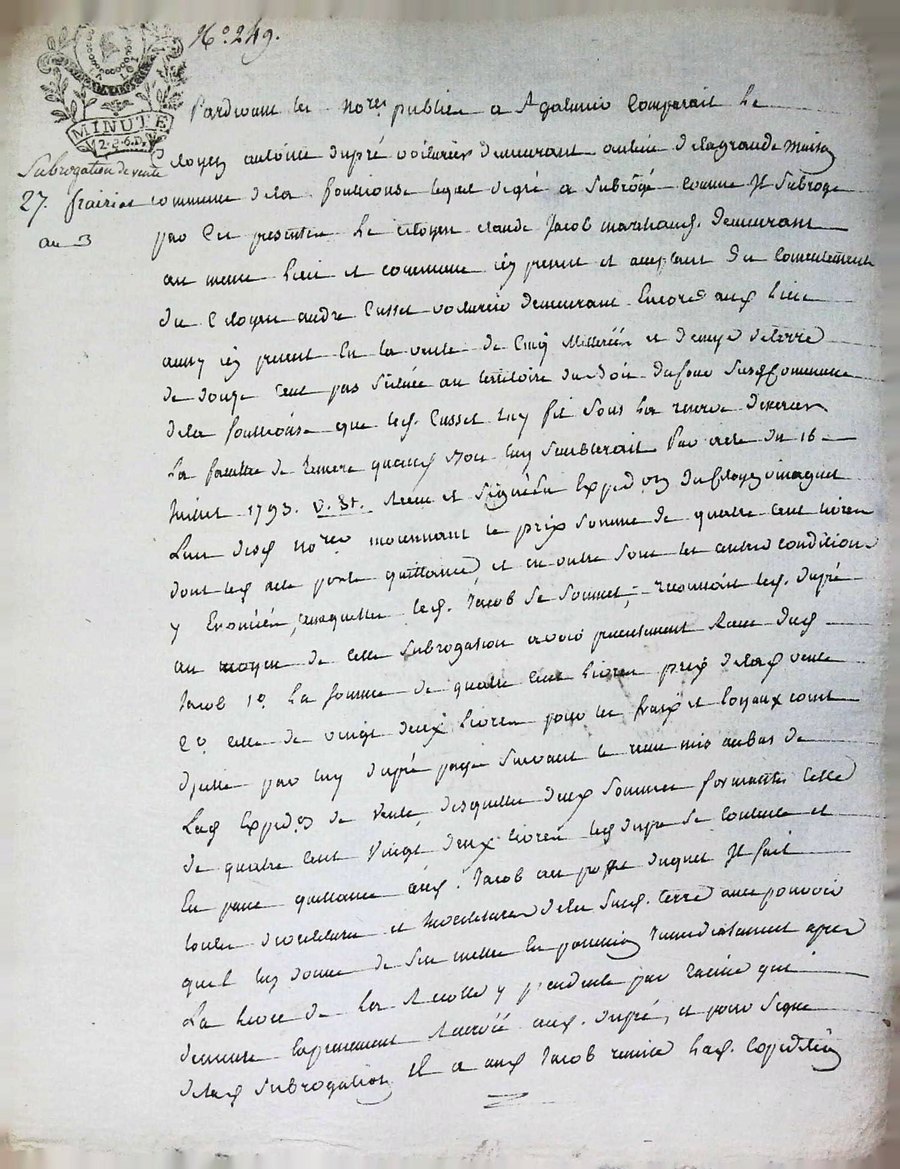 N.o 249.
MINUTE
Pardevant les No.res publics a St galmier Comparait Le
Subrogation de vente
Citoyen antoine dupré voiturier demeurant au lieu de la grande Maison
27. frairial
commune de la fouillouse lequel de gré a Subrôgé comme Il Subroge
an 3
par Ces presentes Le citoyen claude Jacob marchand. demeurant
au meme Lieu et commune icy present et acceptant du Consentement
du Citoyen andré Cusset voiturier demeurant Encore aud Lieu
aussy icy present En la vente de Cinq Mitterées et demye de terre
de douze Cent pas Située au territoire du bois du four Susd Commune
de la fouilliouse que led. Cusset luy fit Sous La reserve d'exercer
La faculté de remere quand bon luy Sembleroit Par acte du 16
Juillet 1793. v. St. Recu et Signé En Expedon du Citoyen
L'un desd No.res moyennant le prix Somme de quatre Cent Livres
dont led acte porte quittance et en outre Sous les autres conditions
y Enoncées, auxquelles led. Jacob Se Soumet, reconnoit led. dupré
au moyen de cette Subrogation avoir presentement Recu dud
Jacob 1.o La Somme de quatre Cent Livres prix de lad vente
2.o celle de vingt deux Livres pour les fraix et Loyaux cout
d'jcelle par luy dupré payé Suivant le recu mis au bas de
Lad Expedon de vente desquelles deux Sommes formantes Celle
de quatre Cent Vingt deux Livres led dupré Se Contente et
En passe quittance aud. Jacob au proffit duquel Il fait
toutes devestitures et Investitures de la Susd. terre avec pouvoir
quil luy donne de S'en mettre En possession Immediatement apres
La levée de La Recolte y pendante par racine qui
demeure Expressement Reservée aud. dupré, et pour Signe
de lad Subrogation Il a aud Jacob remise Lad. Expedition